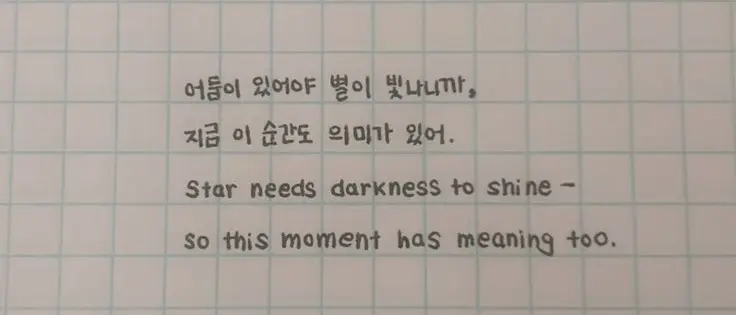 어둠이 있어야 별이 빛나니까,
지금 이 순간도 의미가 있어.
Star needs darkness to shine -
so this moment has meaning too.